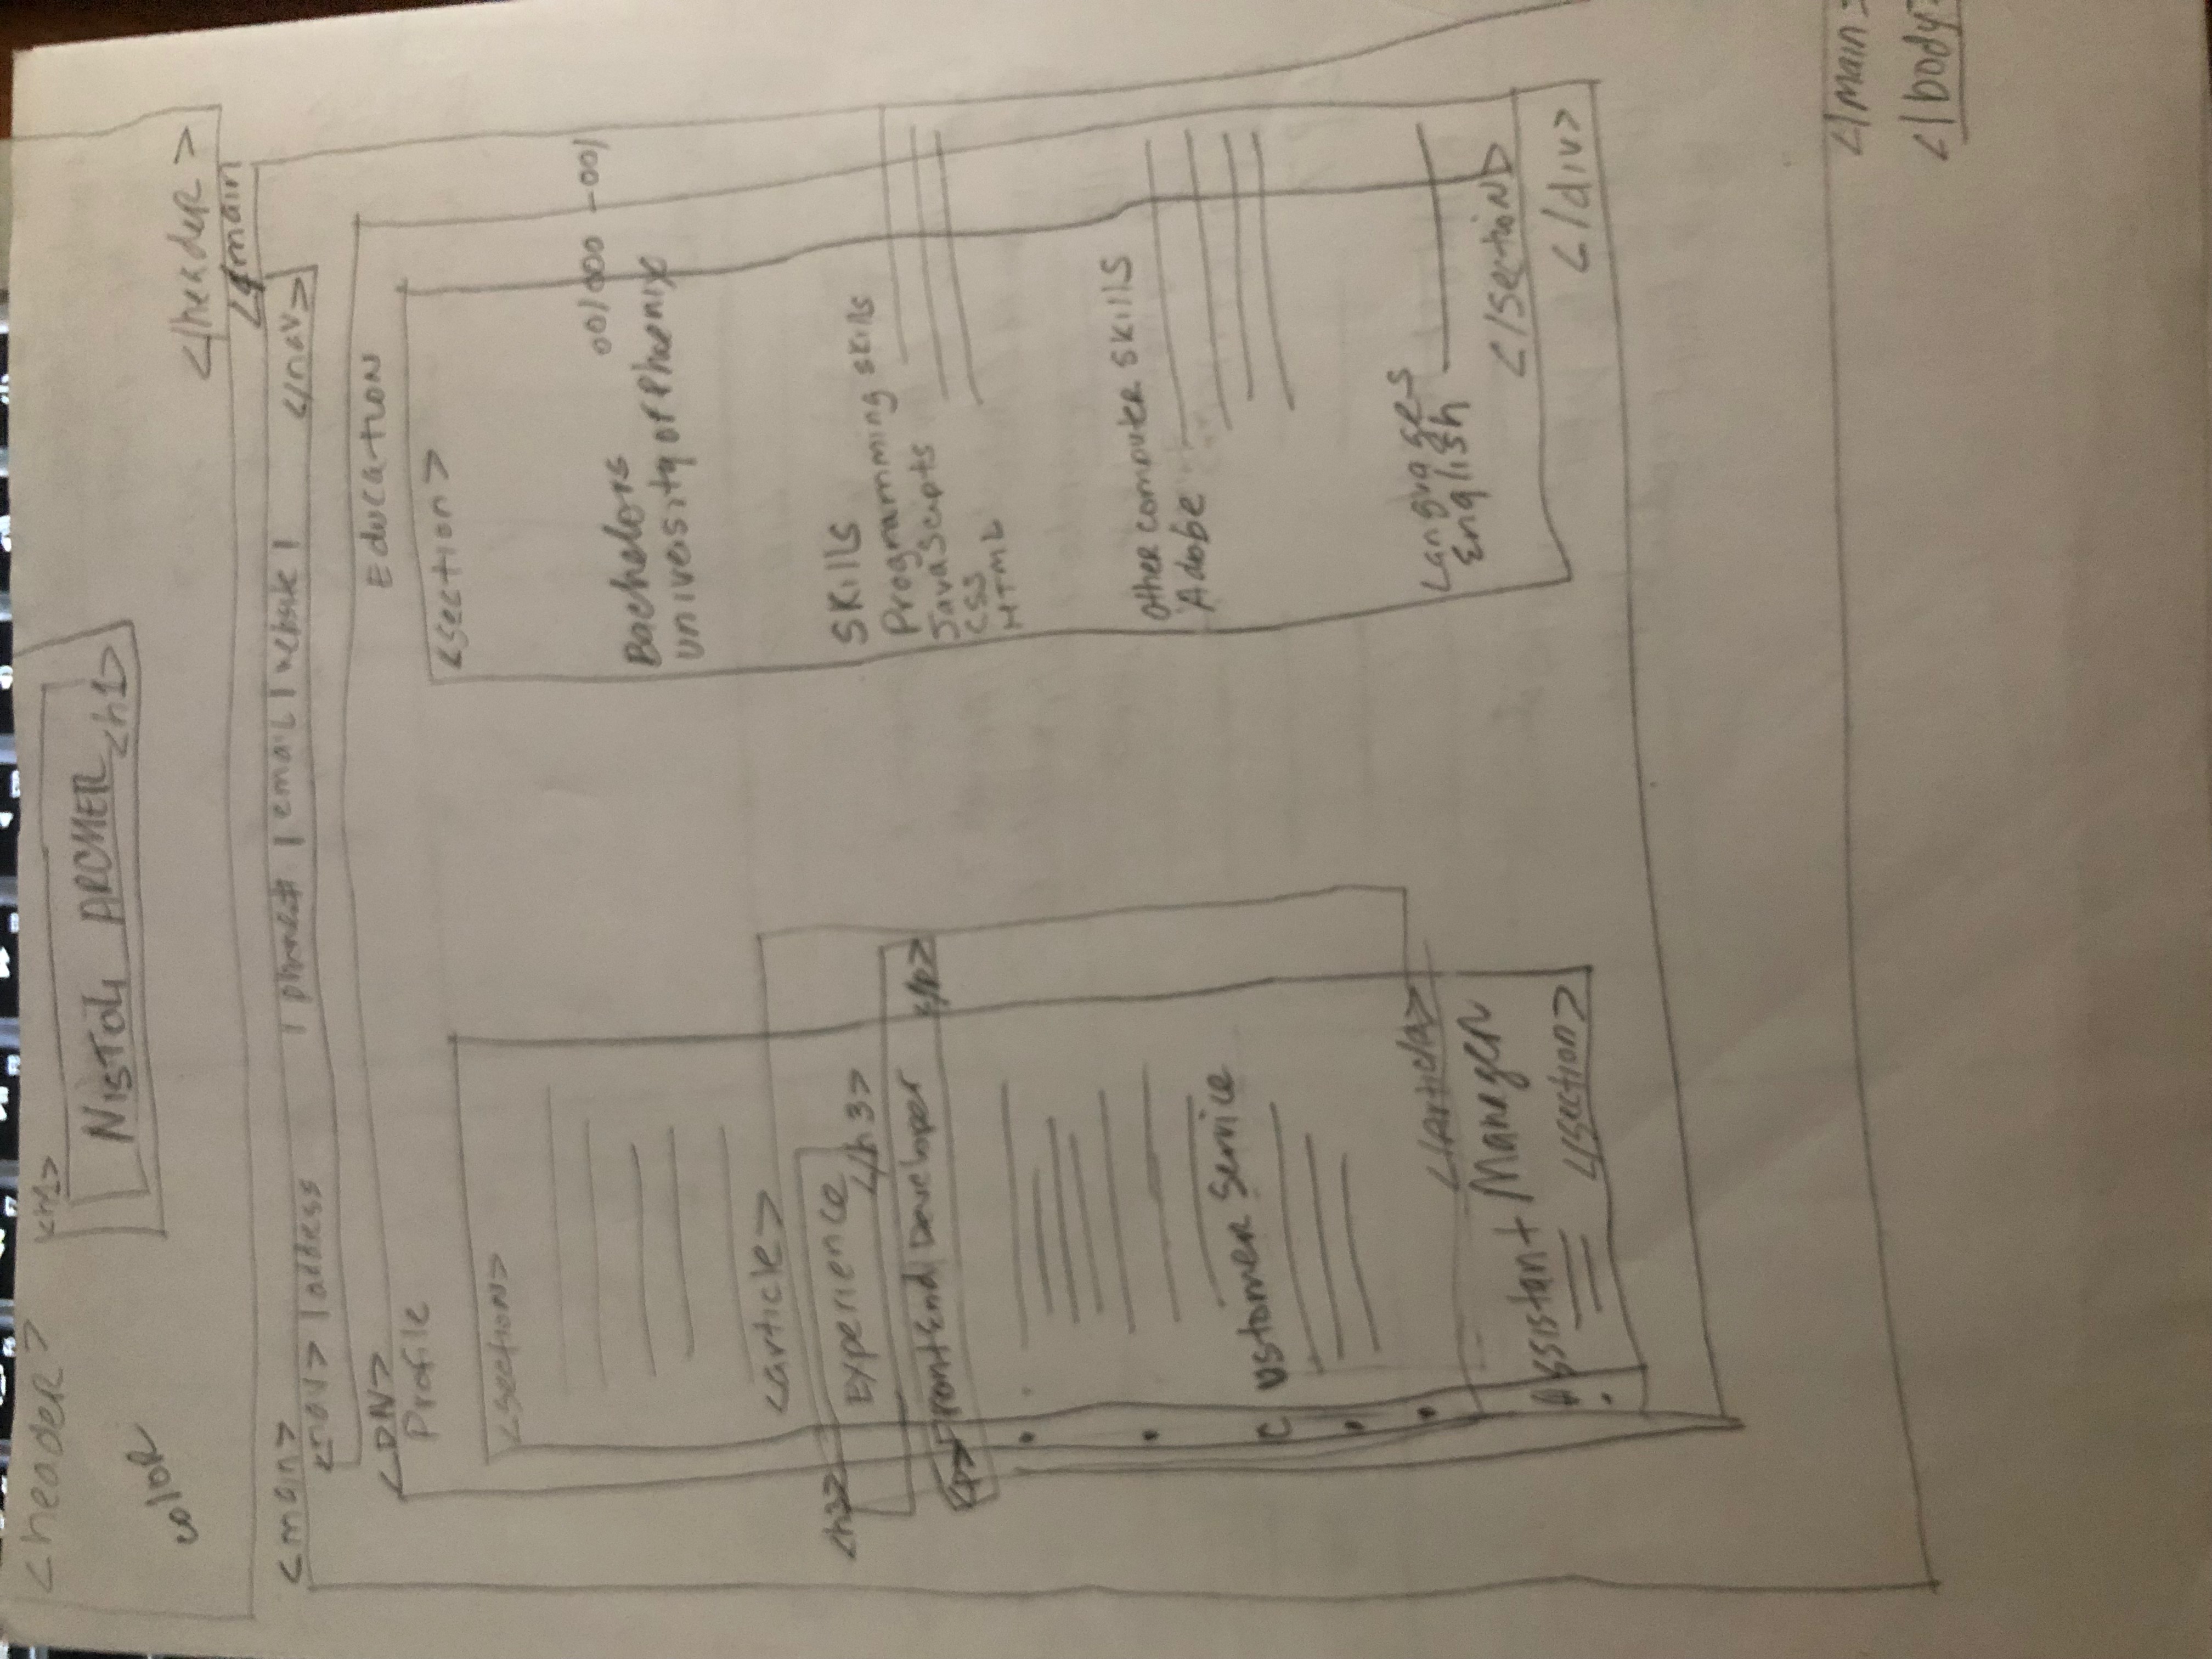 <header>
<h1>
NISTOU ARCHER <h1>
color
</header>
</main
<main>
<nav> | address | phone# | email | website | </nav>
<DIV>
Profile
<section>
<article>
<h3>
Experience
</h3>
<p> FrontEnd Developer </p>
Customer Service
</Article>
Assistant Manager
</section>
Education
<section>
00/000 -00/
Bachelors
University of Phoenix
Skills
Programming skills
JavaScipts
CSS
HTML
Other computer skills
Adobe
Languages
English
</section>
</div>
</main>
</body>